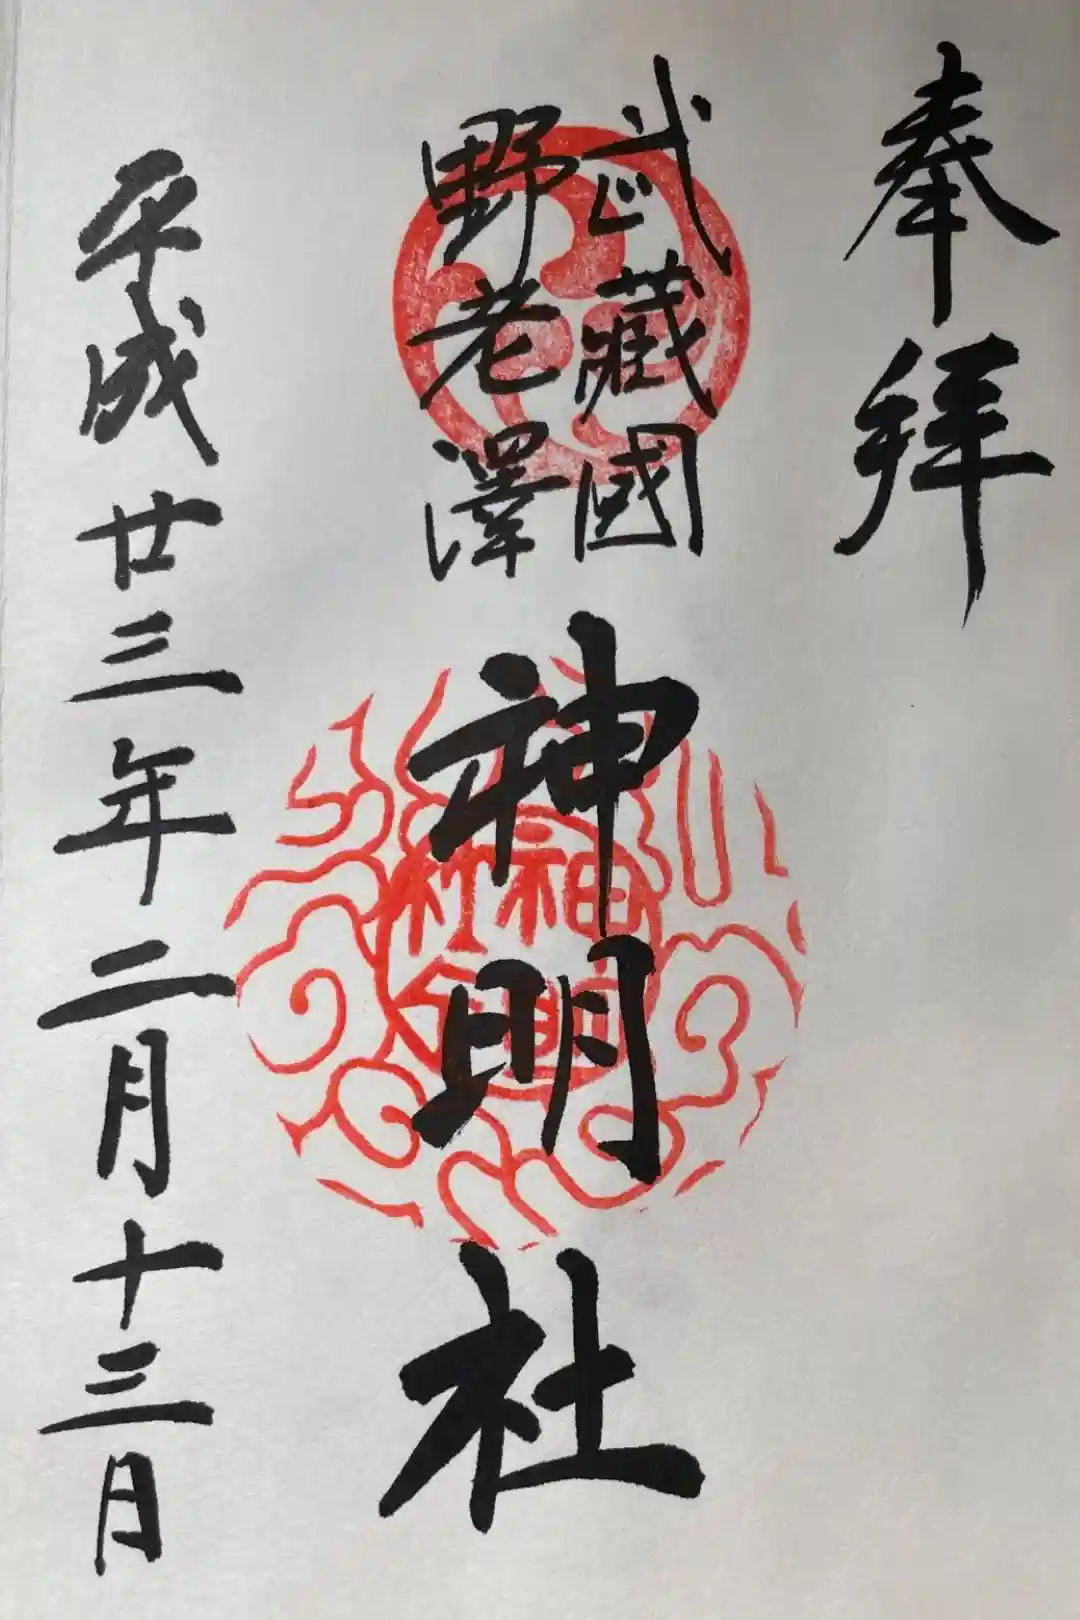 奉拝
武藏國
野老澤
神明社
平成廿三年二月十三日